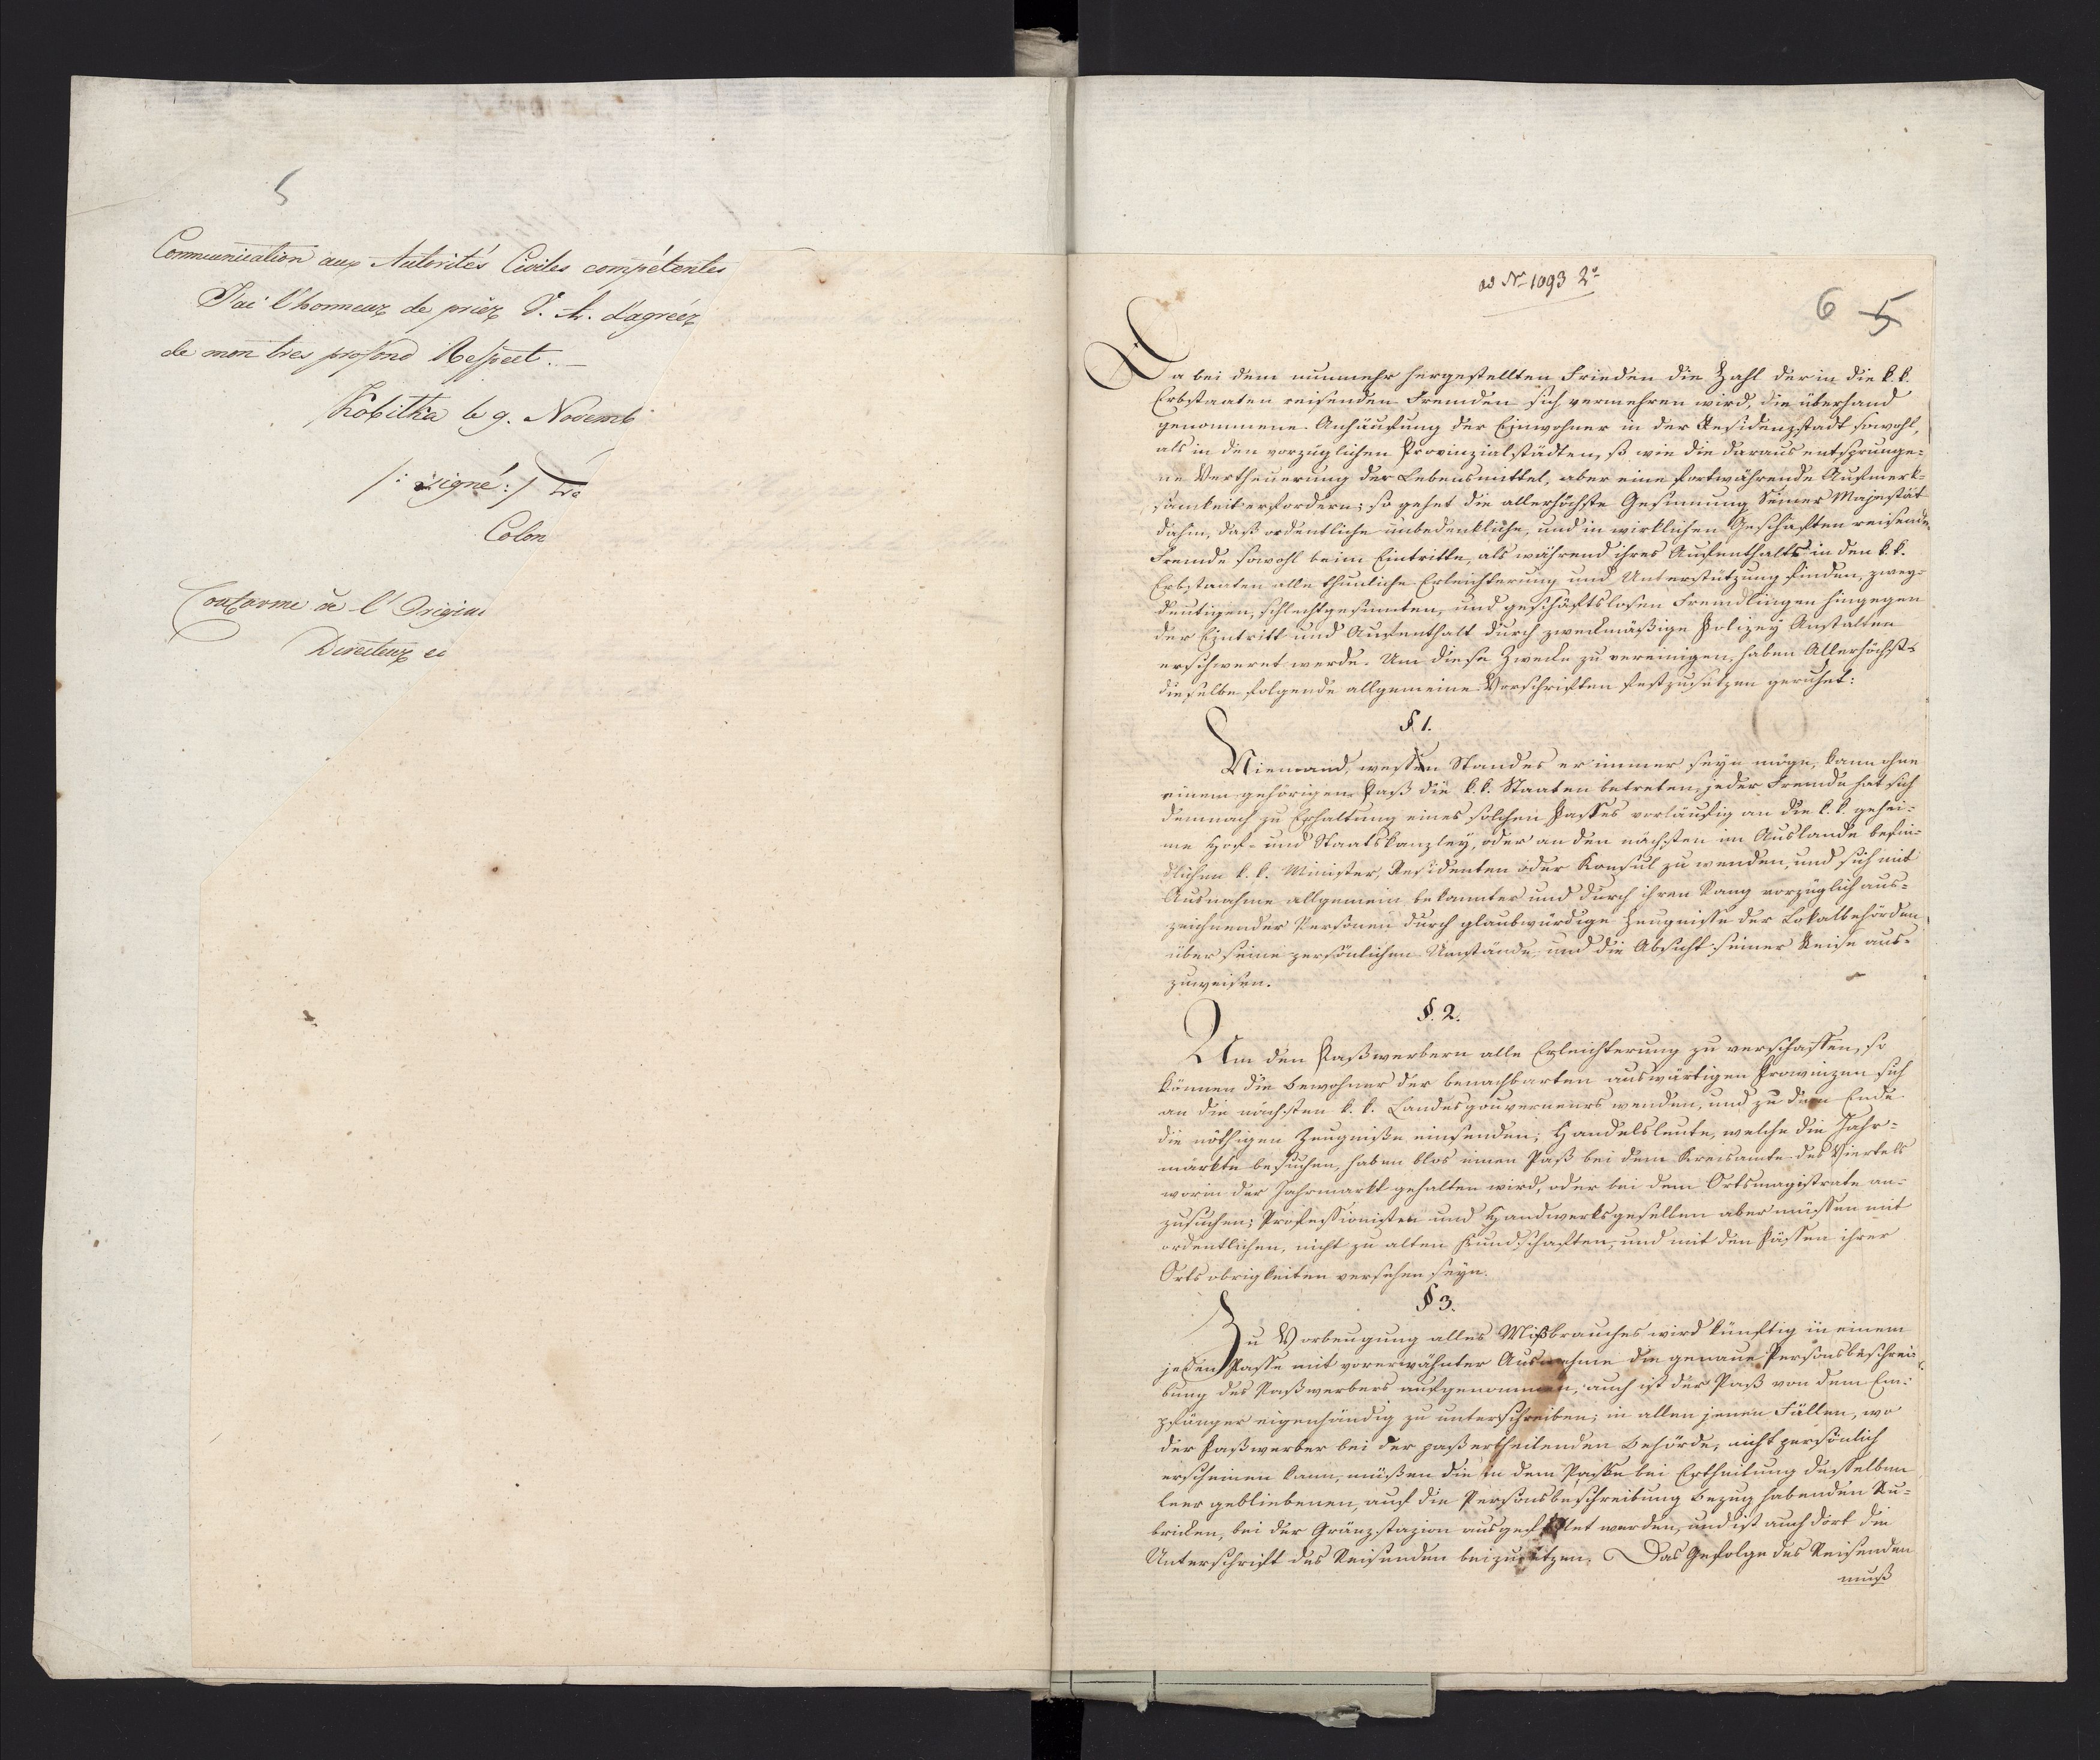 5
Communication aux Autorités Civiles compétentes
J'ai l'honneur de prier V. A. d'agréer
de mon tres profond Respect. —
Kobilka le 9. Novemb
/: signé :/
Colon
Conforme à l'Origin
Directeur
ad Nr 1093 2°
6 5
Da bei dem nunmehr hergestellten Frieden die Zahl der in die k. k.
Erbstaaten reisenden Fremden sich vermehren wird, die überhand
genommene Anhäufung der Einwohner in der Residenzstadt sowohl,
als in den vorzüglichen Provinzialstädten, so wie die daraus entsprunge-
ne Vertheuerung der Lebensmittel, aber eine fortwährende Aufmerk-
samkeit erfordern; so gehet die allerhöchste Gesinnung Seiner Majestät
dahin, daß ordentliche unbedenkliche, und in wirklichen Geschäften reisende
Fremde sowohl beim Eintritte, als während ihres Aufenthalts in den k. k.
Erbstaaten alle thunliche Erleichterung und Unterstützung finden, zwey-
deutigen, schlechtgesinnten, und geschäftslosen Fremdlingen hingegen
der Eintritt und Aufenthalt durch zweckmäßige Polizey Anstalten
erschweret werde. Um diese Zwecke zu vereinigen, haben Allerhöchst-
dieselbe folgende allgemeine Vorschriften festzusetzen geruhet:
§ 1.
Niemand, wessen Standes er immer seyn möge, kann ohne
einem gehörigen Paß die k. k. Staaten betreten, jeder Fremde hat sich
demnach zu Erhaltung eines solchen Passes vorläufig an die k. k. gehei-
me Hof- und Staatskanzley, oder an den nächsten im Auslande befin-
dlichen k. k. Minister, Residenten oder Konsul zu wenden, und sich mit
Ausnahme allgemein bekannter und durch ihren Rang vorzüglich aus-
zeichnender Personen durch glaubwürdige Zeugnisse der Lokalbehörden
über seine persönlichen Umstände und die Absicht seiner Reise aus-
zuweisen.
§. 2.
Um den Paßwerbern alle Erleichterung zu verschaffen, so
können die Bewohner der benachbarten auswärtigen Provinzen sich
an die nächsten k. k. Landesgouverneurs wenden, und zu dem Ende
die nöthigen Zeugniße einsenden; Handelsleute, welche die Jahr-
märkte besuchen, haben blos einen Paß bei dem Kreisamte des Viertels
worin der Jahrmarkt gehalten wird, oder bei dem Ortsmagistrate an-
zusuchen; Professionisten und Handwerksgesellen aber müssen mit
ordentlichen, nicht zu alten Kundschaften, und mit den Pässen ihrer
Orts obrigkeiten versehen seyn.
§ 3.
Zu Vorbeugung alles Mißbrauches wird künftig in einem
jeden Passe mit vorerwähnter Ausnahme die genaue Personsbeschrei-
bung des Paßwerbers aufgenommen, auch ist der Paß von dem Em-
pfänger eigenhändig zu unterschreiben; in allen jenen Fällen, wo
der Paßwerber bei der paß ertheilenden Behörde, nicht persönlich
erscheinen kann, müßen die in dem Passe bei Ertheilung desselben
leer gebliebenen, auf die Personsbeschreibung Bezug habenden Ru-
bricken, bei der Gränzstazion ausgefüllet werden, und ist auch dort die
Unterschrift des Reisenden beizusetzen. Das Gefolge des Reisenden
muß